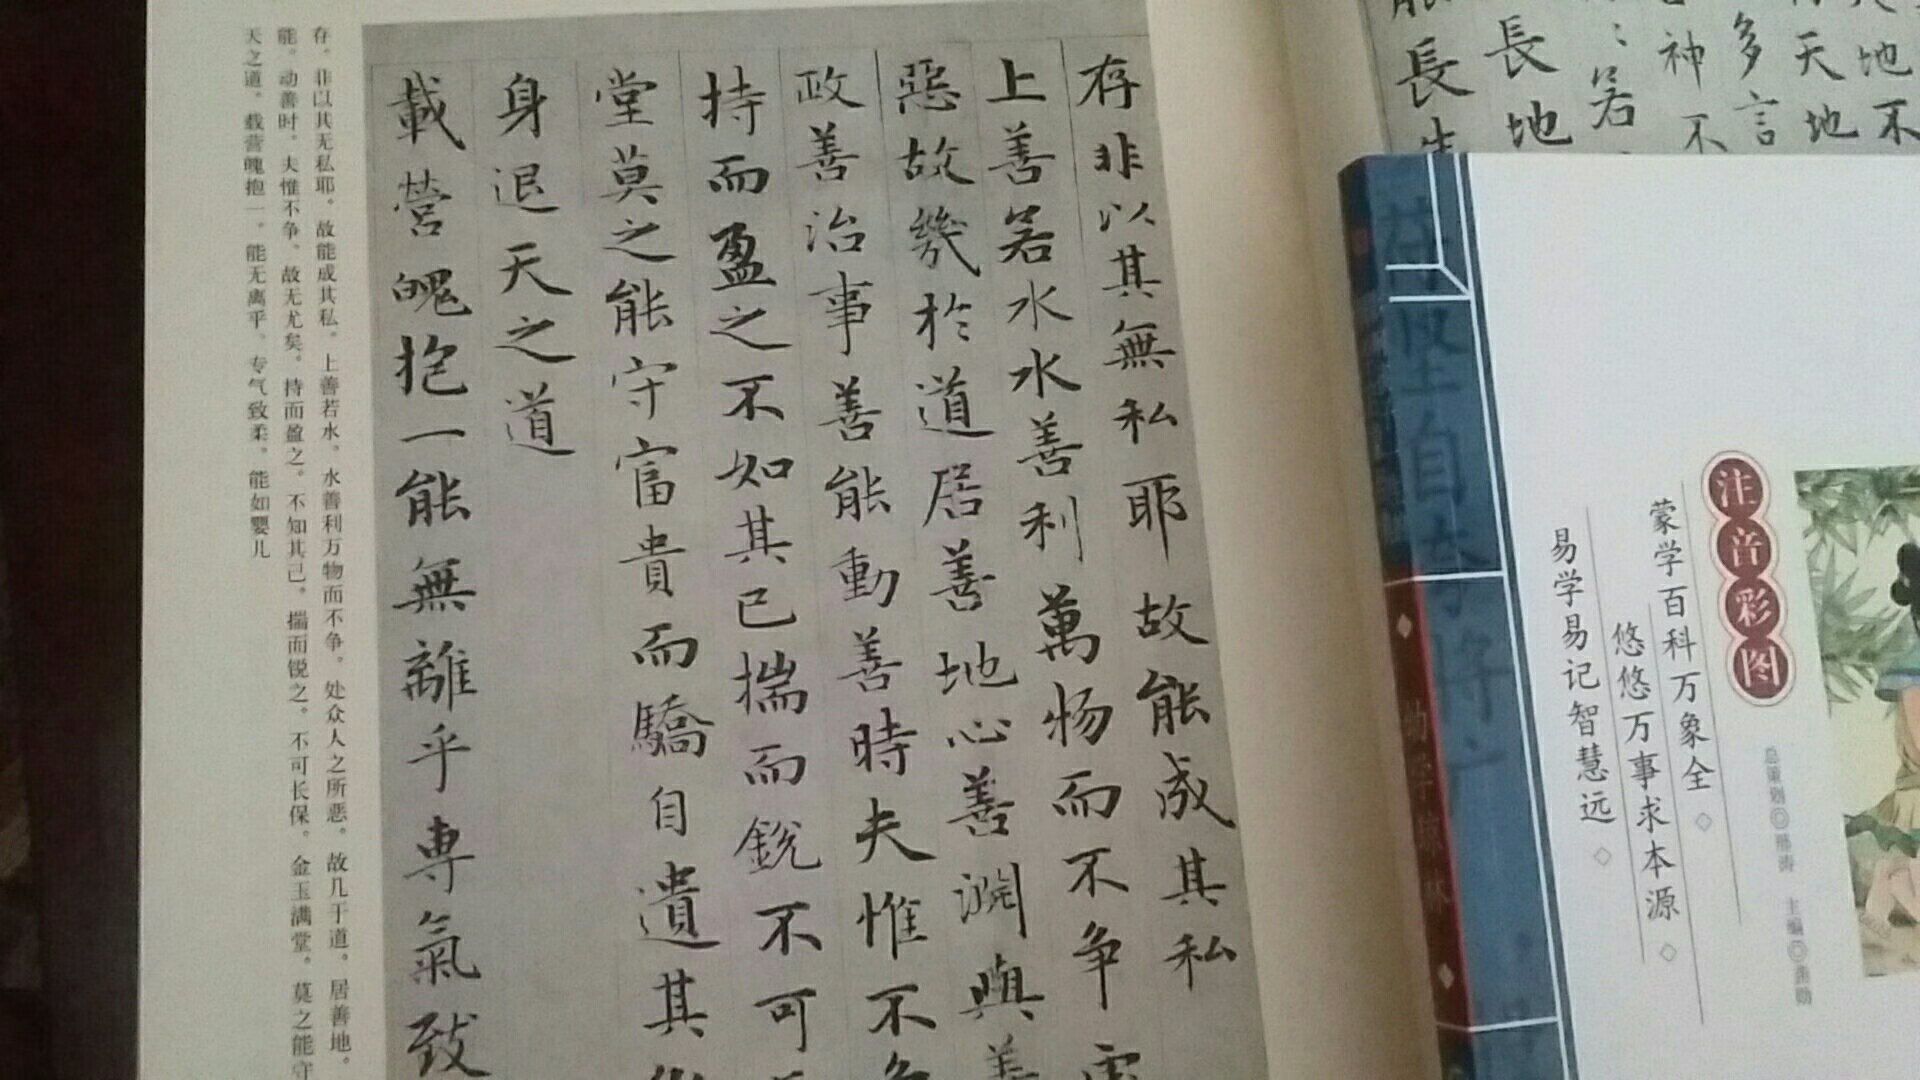 長生
長地
若
神不
多言
天地
地不
存非以其無私耶故能成其私
上善若水水善利萬物而不争處
惡故幾於道居善地心善渊與善
政善治事善能動善時夫惟不争
持而盈之不如其已揣而銳不可
堂莫之能守富貴而驕自遺其咎
身退天之道
載營魄抱一能無離乎專氣致
存。非以其无私耶。故能成其私。上善若水。水善利万物而不争。处众人之所恶。故几于道。居善地。
能。动善时。夫惟不争。故无尤矣。持而盈之。不知其己。揣而锐之。不可长保。金玉满堂。莫之能守
天之道。载营魄抱一。能无离乎。专气致柔。能如婴儿
注音彩图
蒙学百科万象全◇
悠悠万事求本源◇
易学易记智慧远◇
总策划◎
主编◎